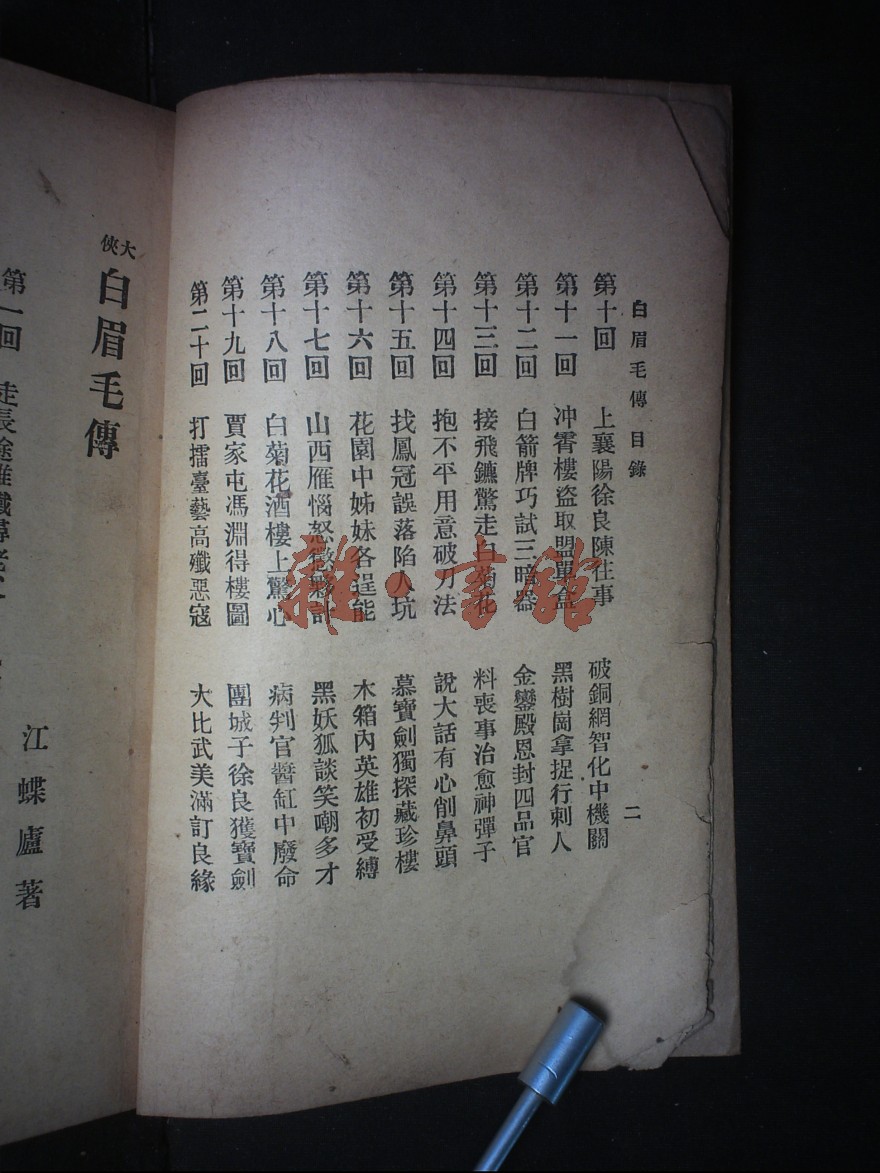 白眉毛傳 目錄 二
第十回 上襄陽徐良陳往事 破銅網智化中機關
第十一回 冲霄樓盜取盟單盒 黑樹崗拿捉行刺人
第十二回 白箭牌巧試三暗器 金鑾殿恩封四品官
第十三回 接飛鑣驚走白菊花 料喪事治愈神彈子
第十四回 抱不平用意破刀法 說大話有心削鼻頭
第十五回 找鳳冠誤落陷人坑 慕寶劍獨探藏珍樓
第十六回 花園中姊妹各逞能 木箱內英雄初受縛
第十七回 山西雁惱怒懲夥計 黑妖狐談笑嘲多才
第十八回 白菊花酒樓上驚心 病判官醬缸中廢命
第十九回 賈家屯馮淵得樓圖 團城子徐良獲寶劍
第二十回 打擂臺藝高殲惡寇 大比武美滿訂良緣
雜·書館
大俠 白眉毛傳
江蝶廬著
第一回 走長途